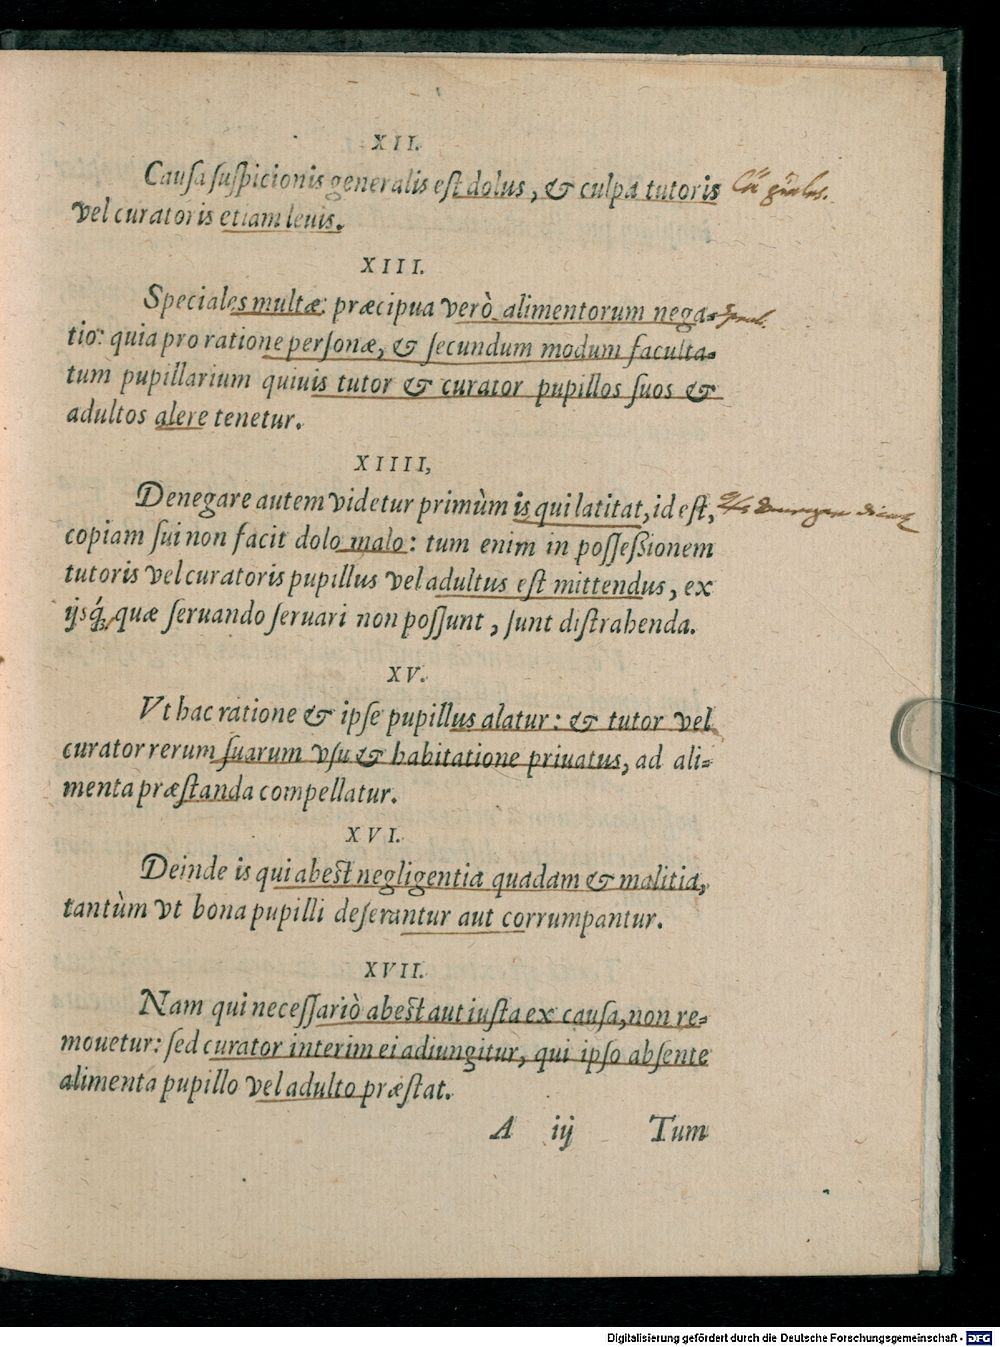 XII.
Cauſa ſuſpicionis generalis eſt dolus, & culpa tutoris
vel curatoris etiam leuis.
XIII.
Speciales multæ: præcipua verò alimentorum nega-
tio: quia pro ratione perſonæ, & ſecundum modum faculta-
tum pupillarium quiuis tutor & curator pupillos ſuos &
adultos alere tenetur.
XIIII,
Denegare autem videtur primùm is qui latitat, id eſt,
copiam ſui non facit dolo malo: tum enim in poſſeſsionem
tutoris vel curatoris pupillus vel adultus eſt mittendus, ex
ijsq́; quæ ſeruando ſeruari non poſſunt, ſunt diſtrahenda.
XV.
Vt hac ratione & ipſe pupillus alatur: & tutor vel
curator rerum ſuarum vſu & habitatione priuatus, ad ali-
menta præſtanda compellatur.
XVI.
Deinde is qui abeſt negligentia quadam & malitia,
tantùm vt bona pupilli deſerantur aut corrumpantur.
XVII.
Nam qui neceſſariò abeſt aut iuſta ex cauſa, non re-
mouetur: ſed curator interim ei adiungitur, qui ipſo abſente
alimenta pupillo vel adulto præſtat.
A iij Tum
Digitalisierung gefördert durch die Deutsche Forschungsgemeinschaft - DFG